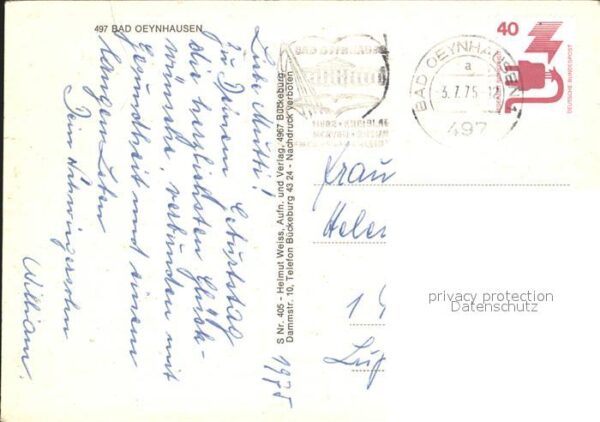 497 BAD OEYNHAUSEN
Liebe Mutti!
Zu Deinem Geburtstag
die herzlichsten Glück-
wünsche, verbunden mit
Gesundheit und einem
langen Leben
Dein Schwiegersohn
William.
1975
S Nr. 405 - Helmut Weiss, Aufn. und Verlag, 4967 Bückeburg
Dammstr. 10, Telefon Bückeburg 43 24 - Nachdruck verboten
BAD OEYNHAUSEN
HERZ · KREISLAUF
BAD OEYNHAUSEN
a
-3.7.75-12
497
40
DEUTSCHE BUNDESPOST
Frau
Hele
1
privacy protection
Datenschutz